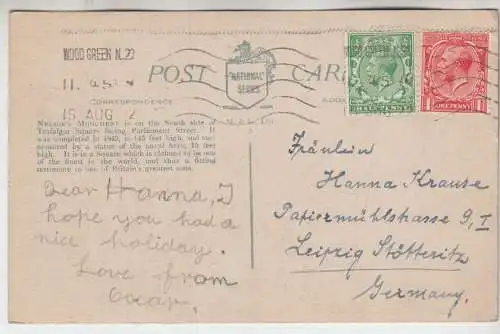 WOOD GREEN N.22
11.45
15 AUG 2
POST CAR
"NATIONAL"
SERIES
CORRESPONDENCE
HALFPENNY
ONE PENNY
Nelson's Monument is on the South side of
Trafalgar Square facing Parliament Street. It
was completed in 1840, is 145 feet high, and
by a statue of the naval hero, 16 feet
high. It is in a Square which is claimed to be one
of the finest in the world, and thus a fitting
testimony to one of Britain's greatest sons.
Dear Hanna, I
hope you had a
nice holiday.
Love from
Oscar.
Fräulein
Hanna Krause
Papiermühlstrasse 9, I
Leipzig Stötteritz
Germany.